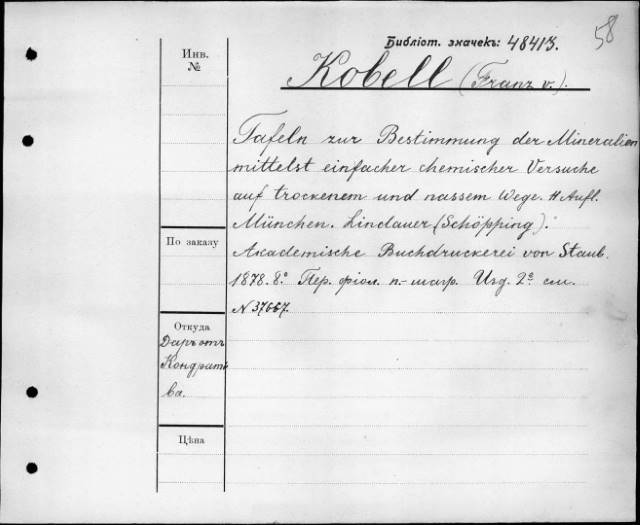 58
Библіот. значекъ: 48413.
Инв.
№
Kobell (Franz v.).
Tafeln zur Bestimmung der Mineralien
mittelst einfacher chemischer Versuche
auf trockenem und nassem Wege. 11 Aufl.
München. Lindauer (Schöpping).
По заказу
Akademische Buchdruckerei von Staub.
1878. 8.° Пер. фіол. п.-шагр. Изд. 2е см.
N 37667.
Откуда
Даръ отъ
Кондрать
ва.
Цѣна